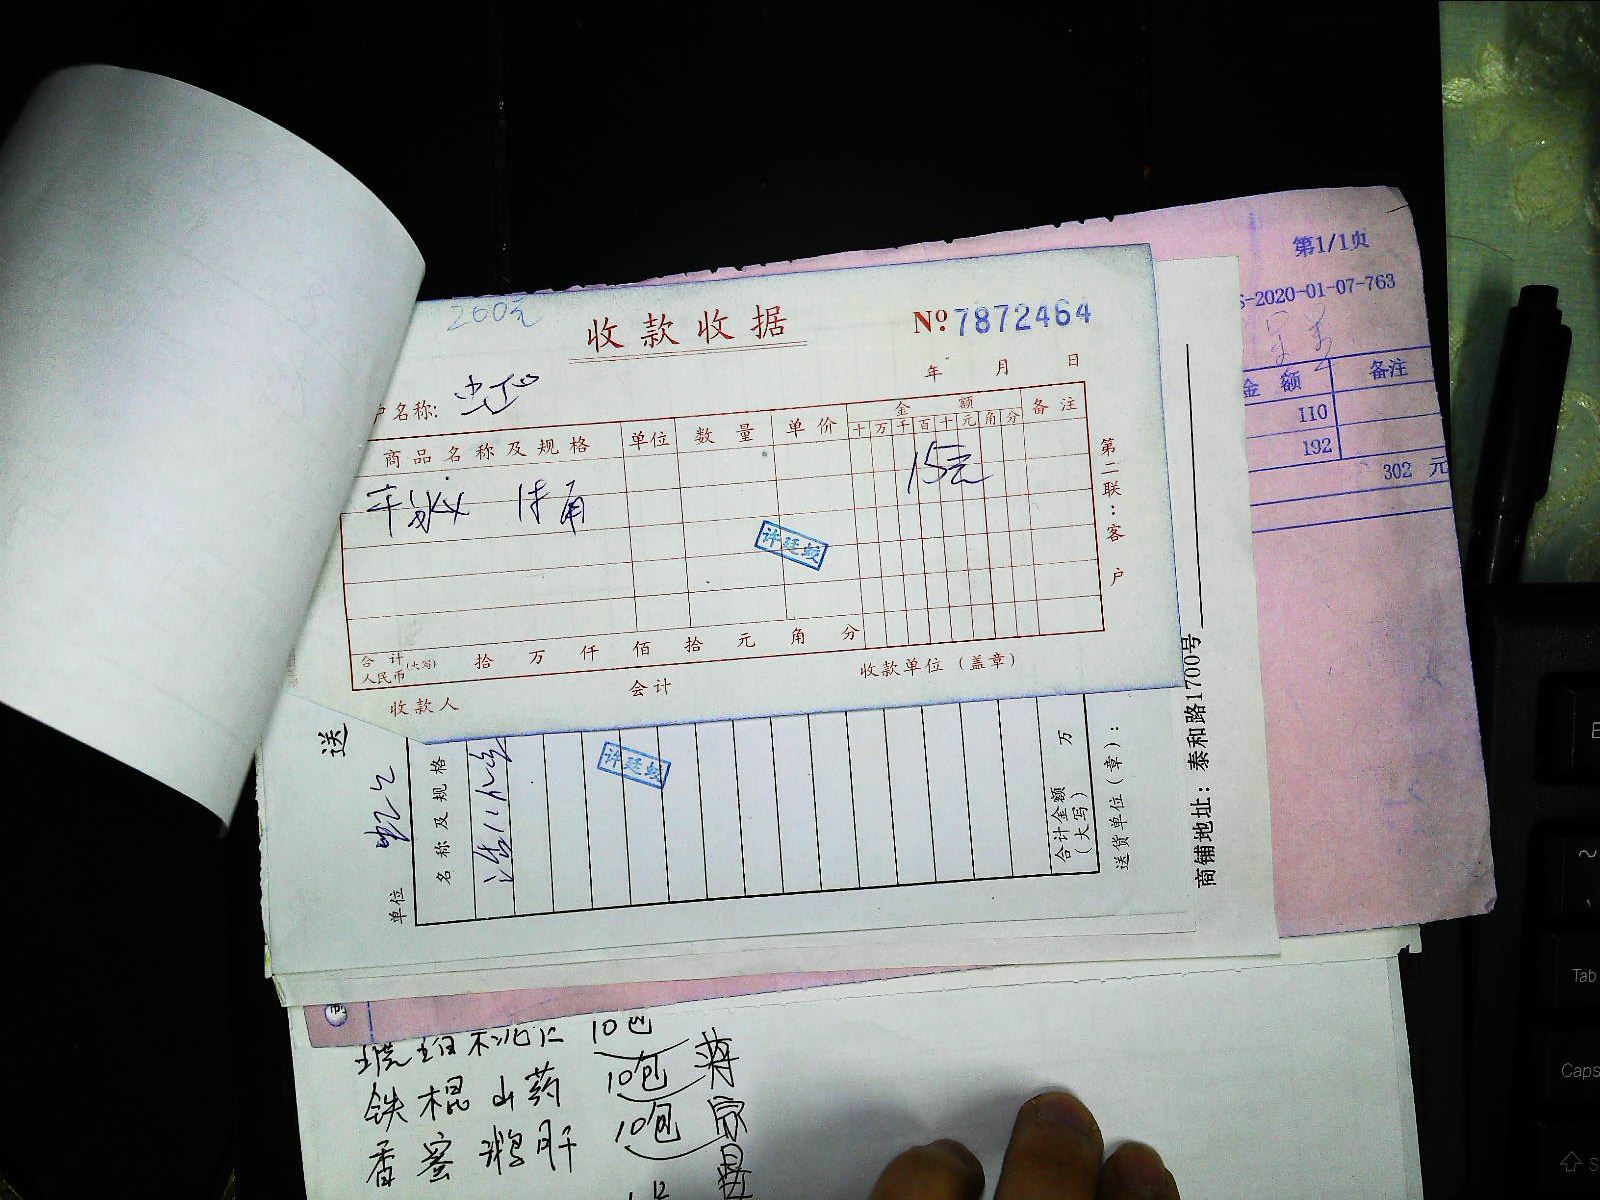 第1/1页
-2020-01-07-763
金 额 备注
110
192
302 元
260元
收款收据
№ 7872464
年 月 日
户名称:
商品名称及规格 单位 数量 单价 金额 备注
十万千百十元角分
15元
许廷蛟
第二联：客户
合计人民币(大写) 拾 万 仟 佰 拾 元 角 分
收款人 会计 收款单位（盖章）
送
单位
名称及规格
许廷蛟
合计金额（大写） 万
送货单位（章）：
商铺地址：泰和路1700号
琥珀桃仁 10包
铁棍山药 10包
香蜜鹅肝 10包